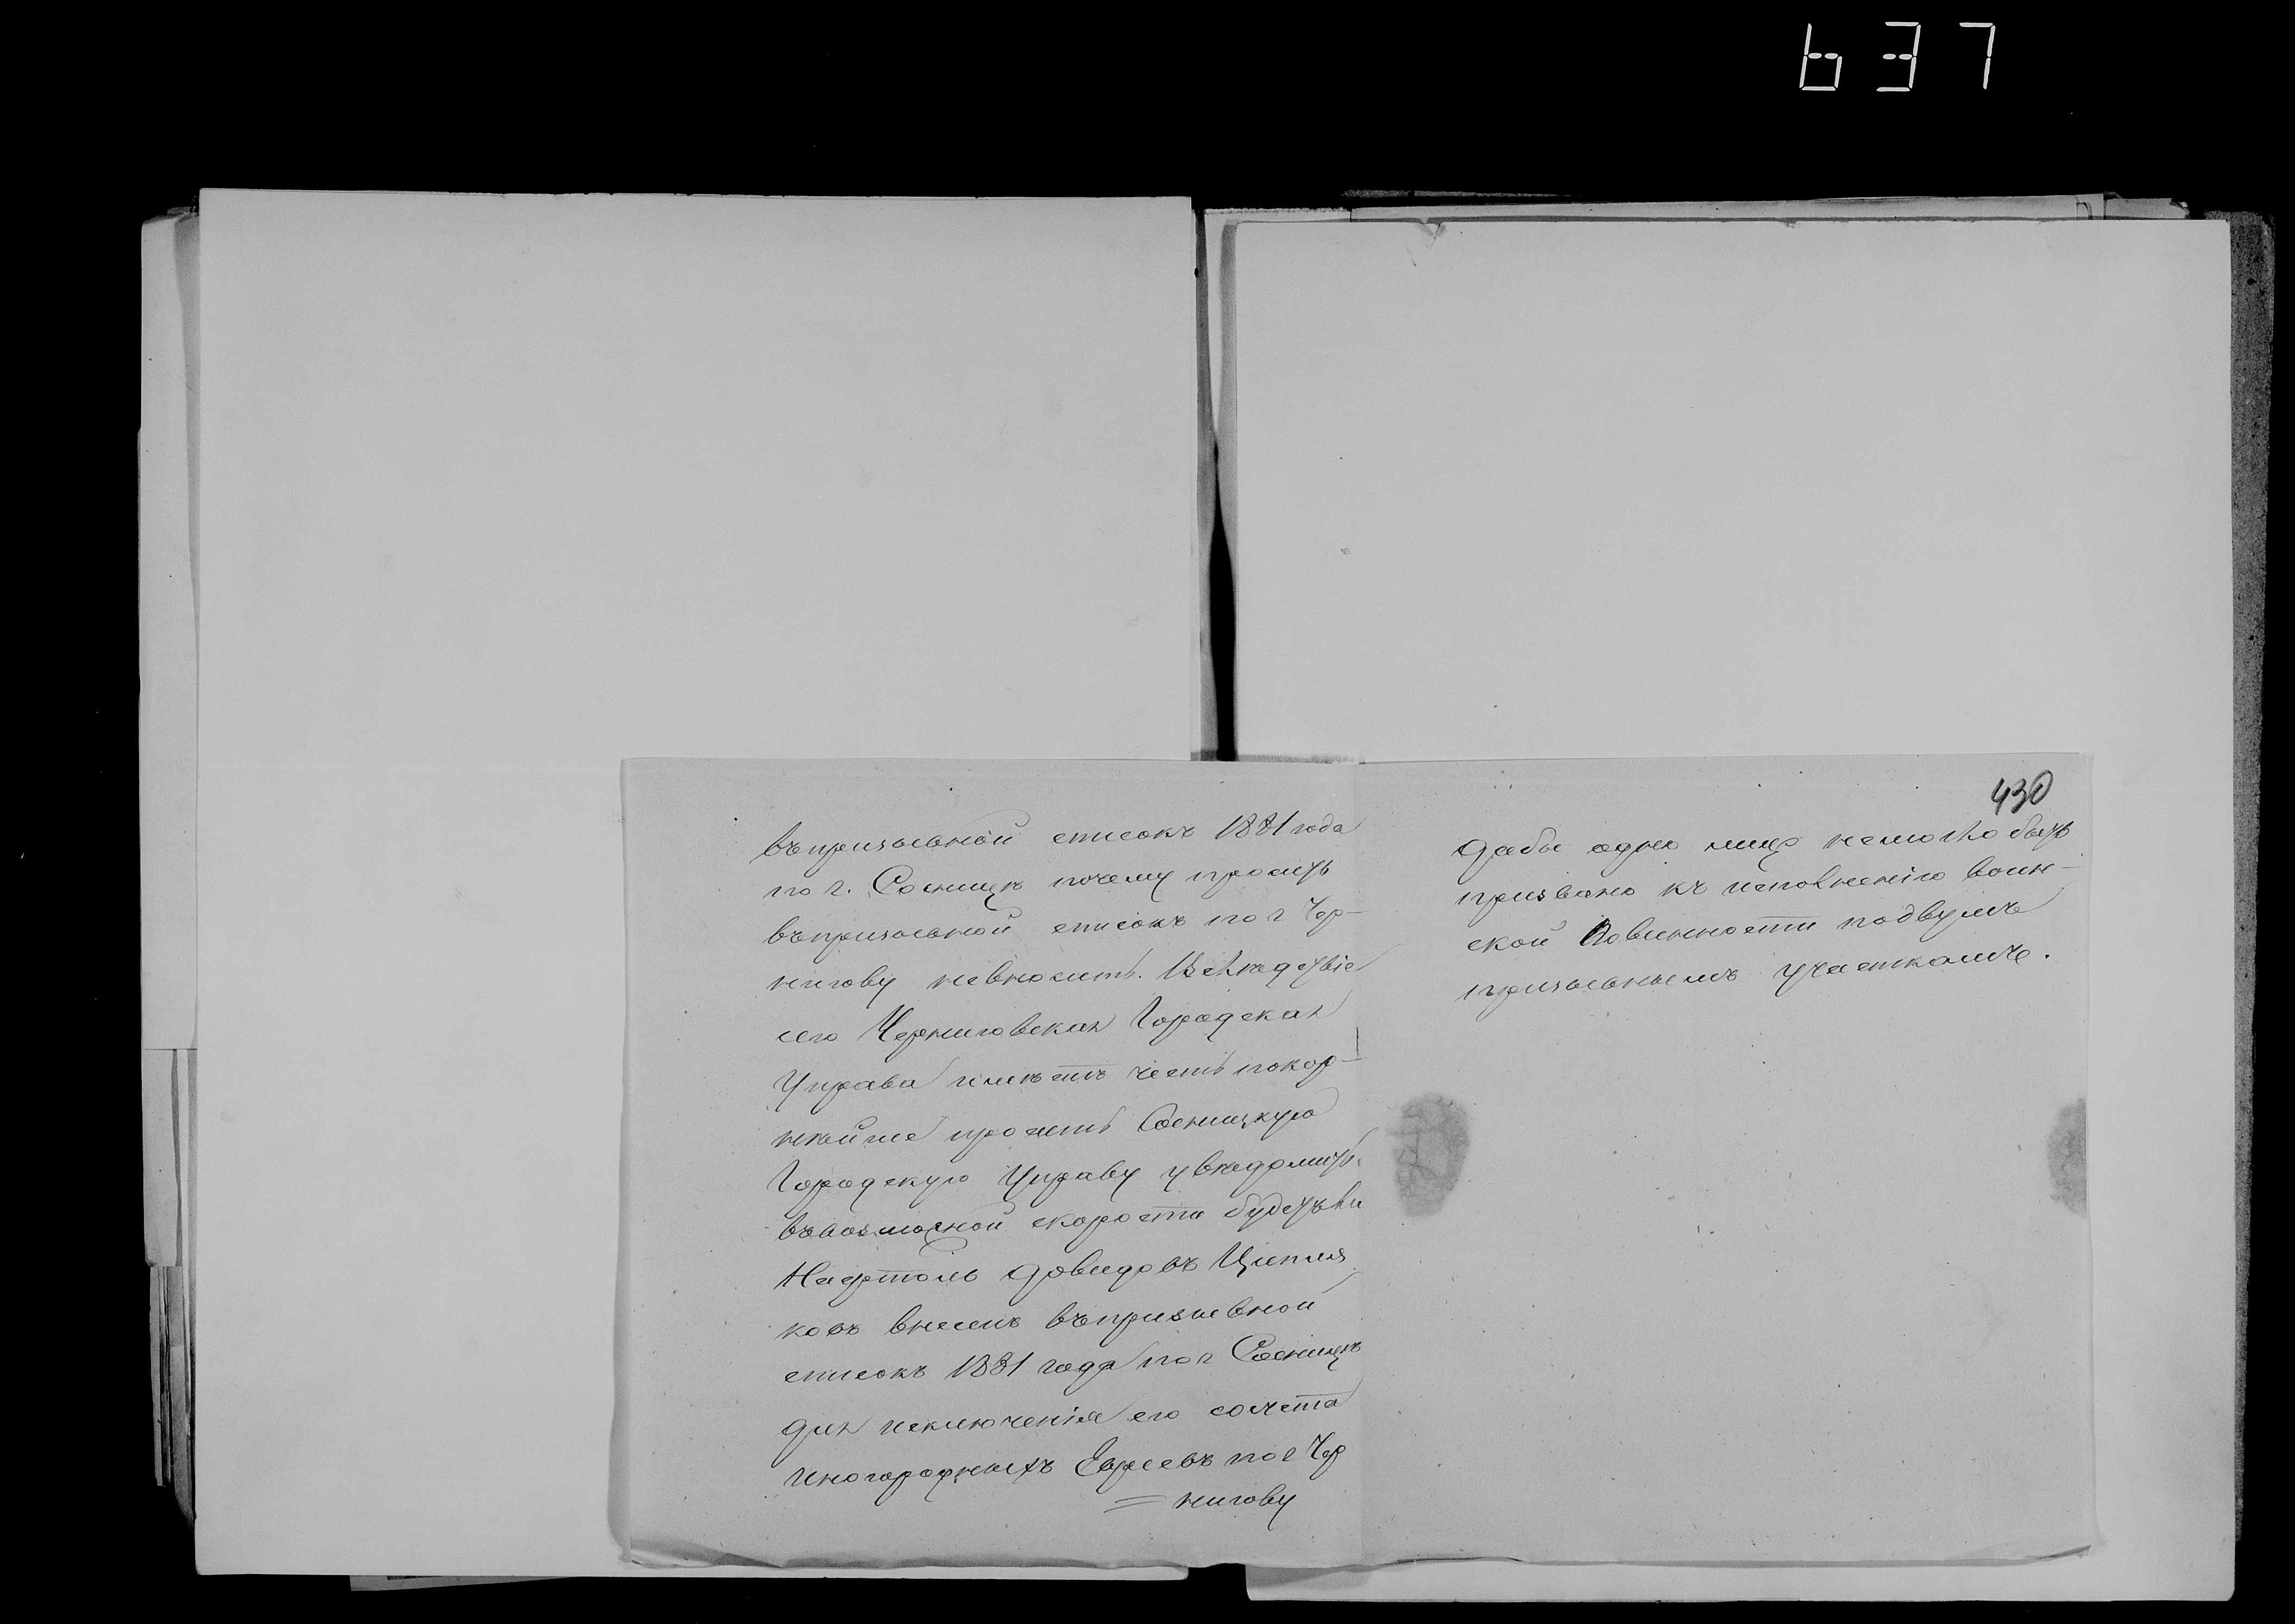 637
въ призывной списокъ 1881 года
по г. Сосницѣ почему просить
въ призывной списокъ по г Чер-
нигову не вносить. Вслѣдствіе
сего Черниговская Городская
Управа имѣетъ честь покор-
нѣйше просить Сосницкую
Городскую Управу увѣдомить
въ возможной скорости будетъ ли
Нафтоль Довидовъ Ципля
ковъ внесенъ въ призывной
списокъ 1881 года по г Сосницѣ
для исключенія его со счета
иногородныхъ Евреевъ по г Чер
= нигову
430
дабы одно лицо не могло быть
призвано къ исполненію воин-
ской Повинности по двумъ
призывнымъ участкамъ.